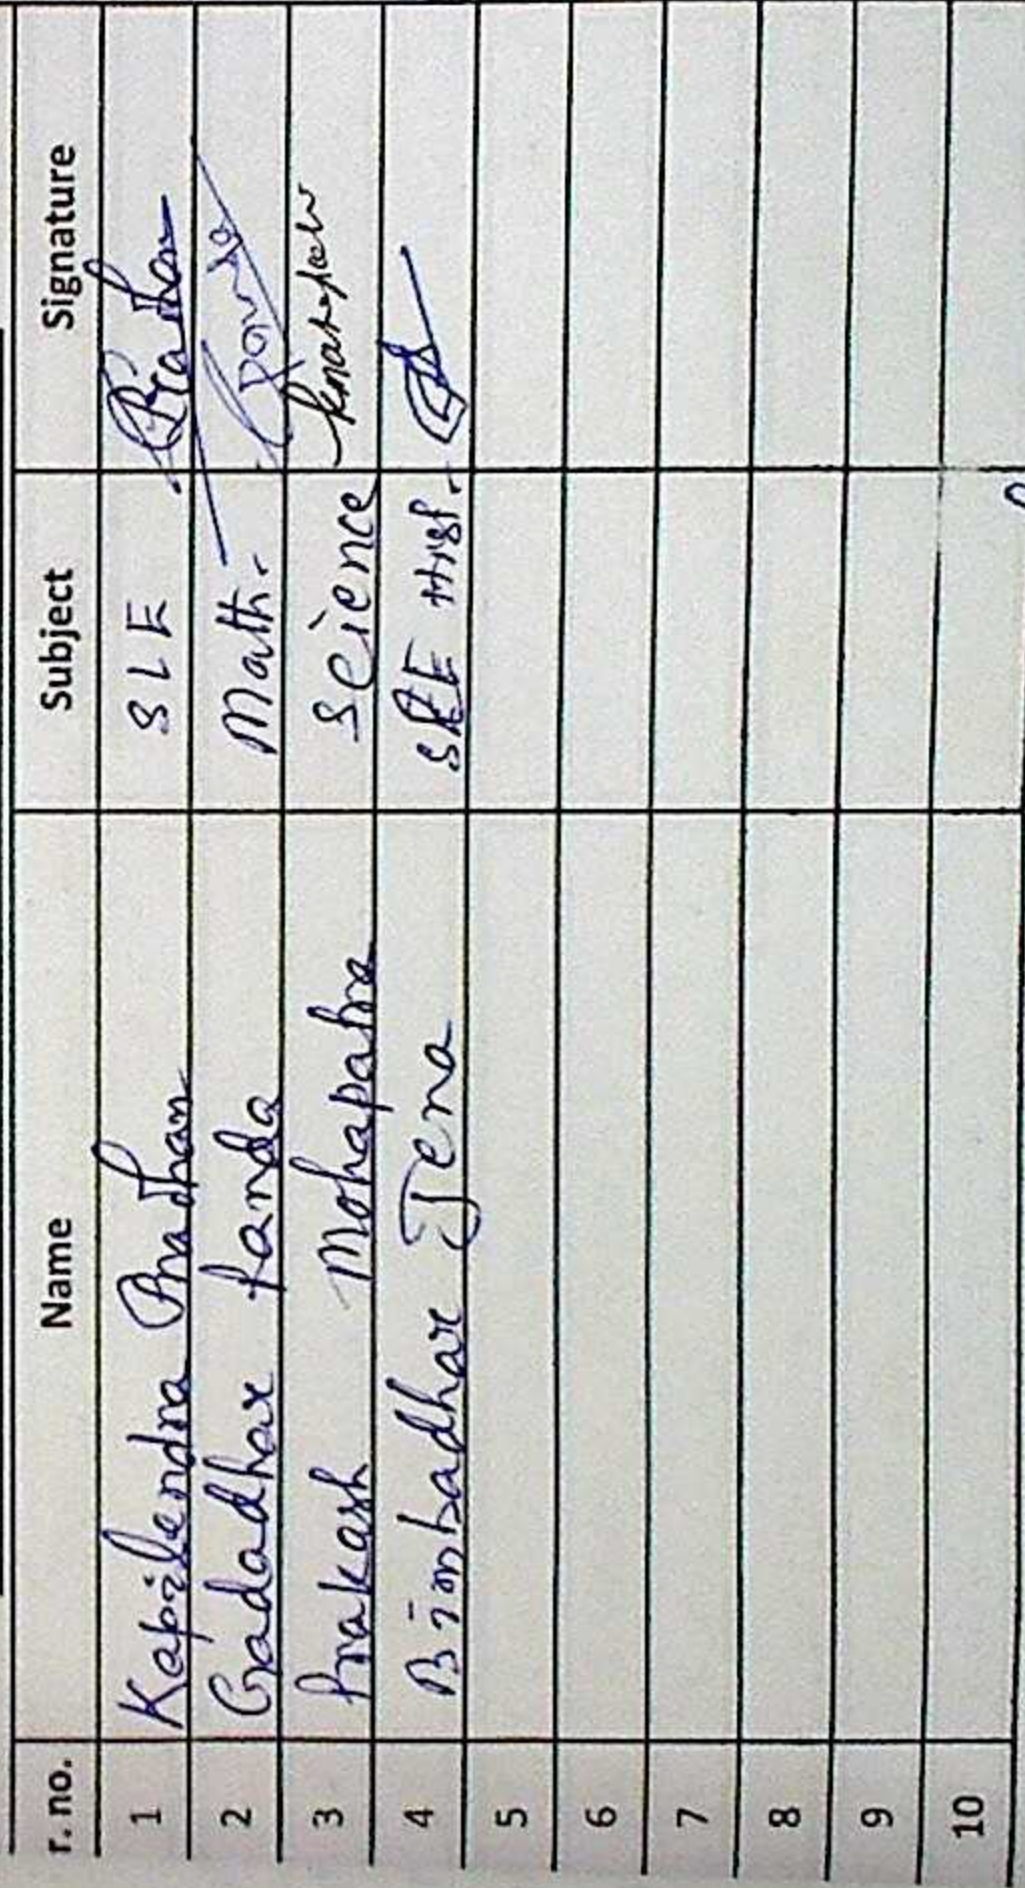 r. no. Name Subject Signature
1 Kapilendra Pradhan SLE Pradhan
2 Gadadhar Panda Math. Panda
3 Prakash Mohapatra Science
4 Bimbadhar Jena Hist.
5
6
7
8
9
10